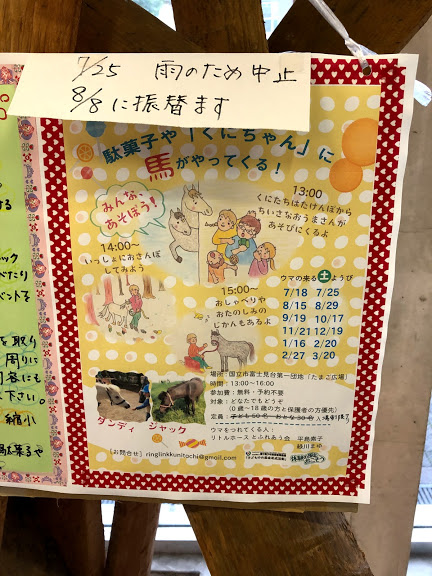 7/25 雨のため中止
8/8に振替ます
駄菓子や「くにちゃん」に
馬がやってくる！
みんな、
あそぼう！
13:00
くにたちはたけんぼから
ちいさなおうまさんが
あそびにくるよ
14:00〜
いっしょにおさんぽ
してみよう
15:00〜
おしゃべりや
おたのしみの
じかんもあるよ
ウマの来る土ようび
7/18 7/25
8/15 8/29
9/19 10/17
11/21 12/19
1/16 2/20
2/27 3/20
場所：国立市富士見台第一団地（たまご広場）
時間：13:00〜16:00
参加費：無料・予約不要
対象：どなたでもどうぞ
（0歳〜18歳の方と保護者の方優先）
定員：子ども50名 おとな30名 入場制限了
ウマをつれてくる人：
リトルホースとふれあう会
ダンディ ジャック
【お問合せ】ringlinkkunitochi@gmail.com
ック
を取り
周りに
下さい。
縮小